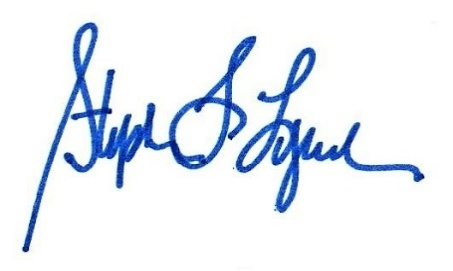 Steph S Lynch